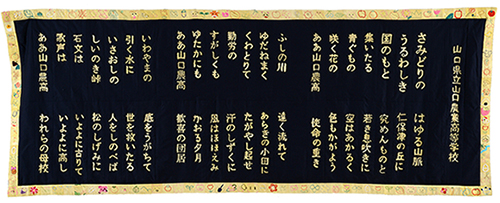 山口県立山口農業高等学校
さみどりの　はゆる山脈
うるわしき　仁保津の丘に
国のもと　究めんものと
集いたる　若き息吹きに
青ぐもの　空はあかるく
咲く花の　色もかがよう
ああ山口農高　使命の重き
ふしの川　遠く流れて
ゆだねまく　あらきの小田に
くわとりて　たがやし起せ
勤労の　汗のしずくに
すがしくも　風はほほえみ
ゆたかにも　かおる夕月
ああ山口農高　歓喜の団居
いわやまの　底をうがちて
引く水に　世を救いたる
いさおしの　人をしのべば
しいのき峠　松のしげみに
石文は　いよよに古りて
歌声は　いよよに高し
ああ山口農高　われらの母校